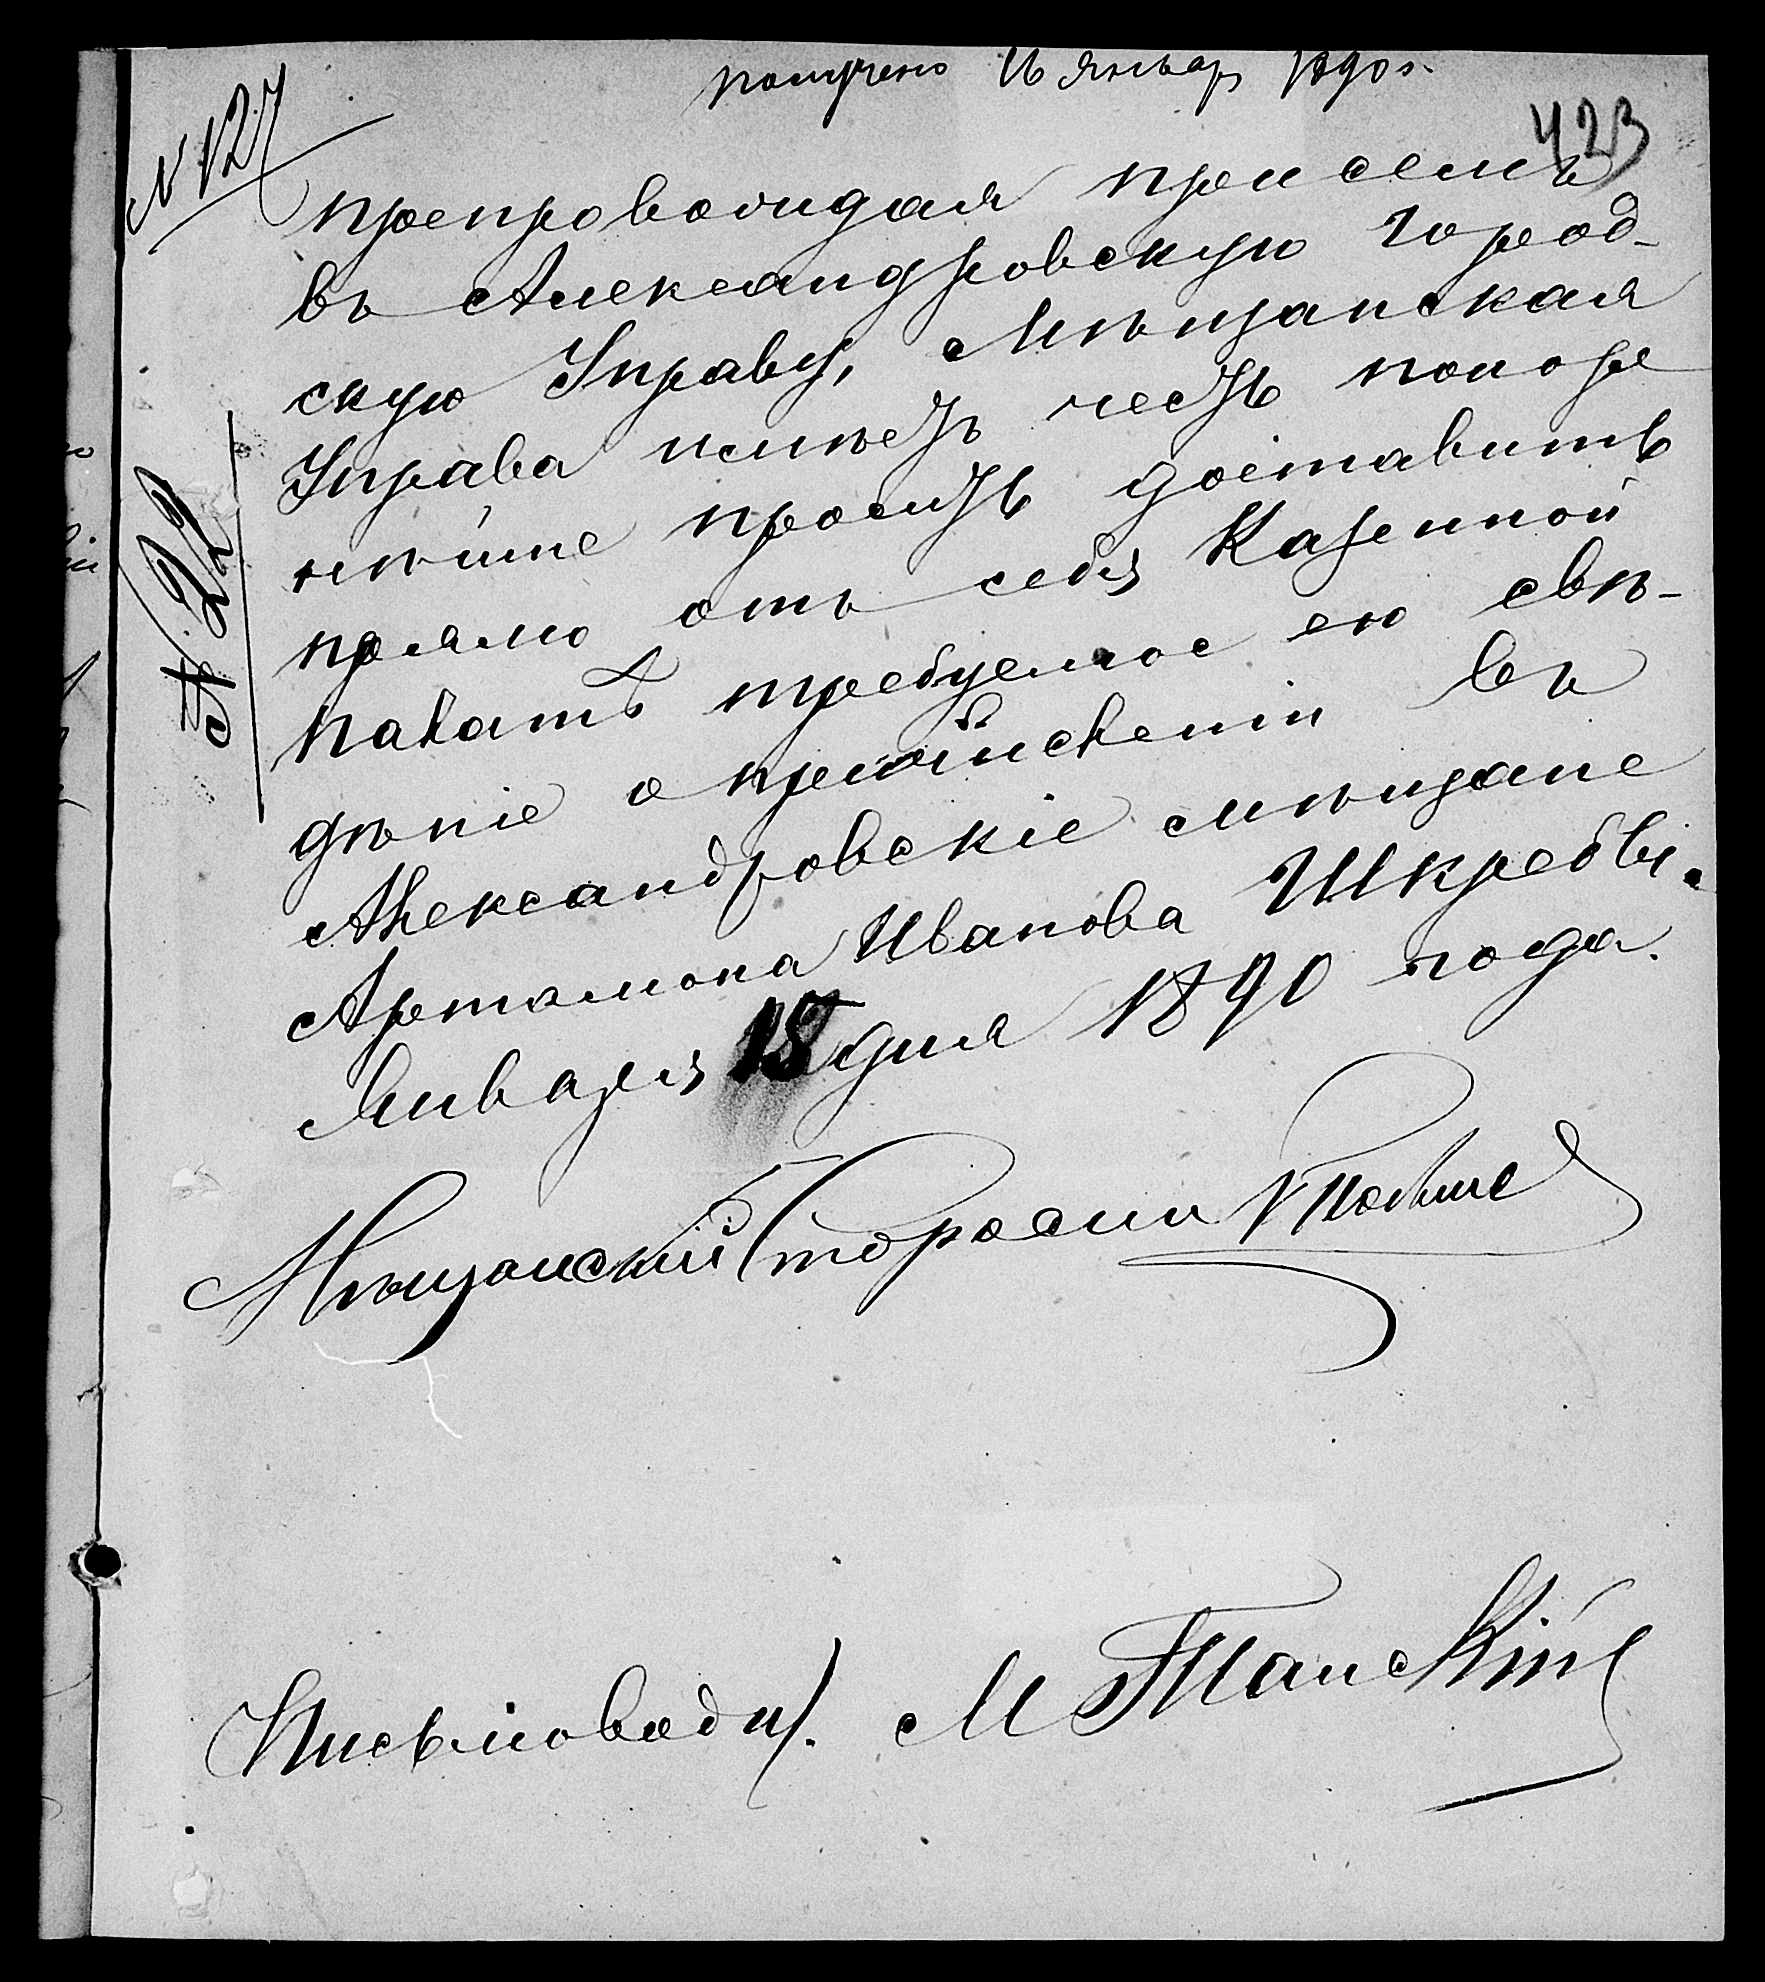 получено 16 Январ 1890 г.
423
№ 127
препровождая при семъ
въ Александровскую Город-
скую Управу, Мѣщанская
Управа имѣетъ честь покорн
нѣйше просить доставить
прямо отъ себя Казенной
палатѣ требуемое ею свѣ-
дѣніе о приписке­ніи въ
Александровскіе мѣщане
Артамона Иванова Шкребы.
Января 15 дня 1890 года.
Мѣщанскій Староста
Письмовод. М Манскій